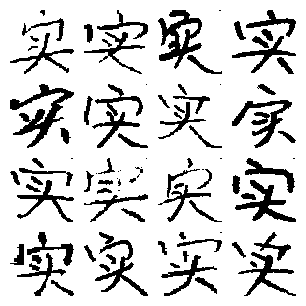 实实实实
实实实实
实实实实
实实实实